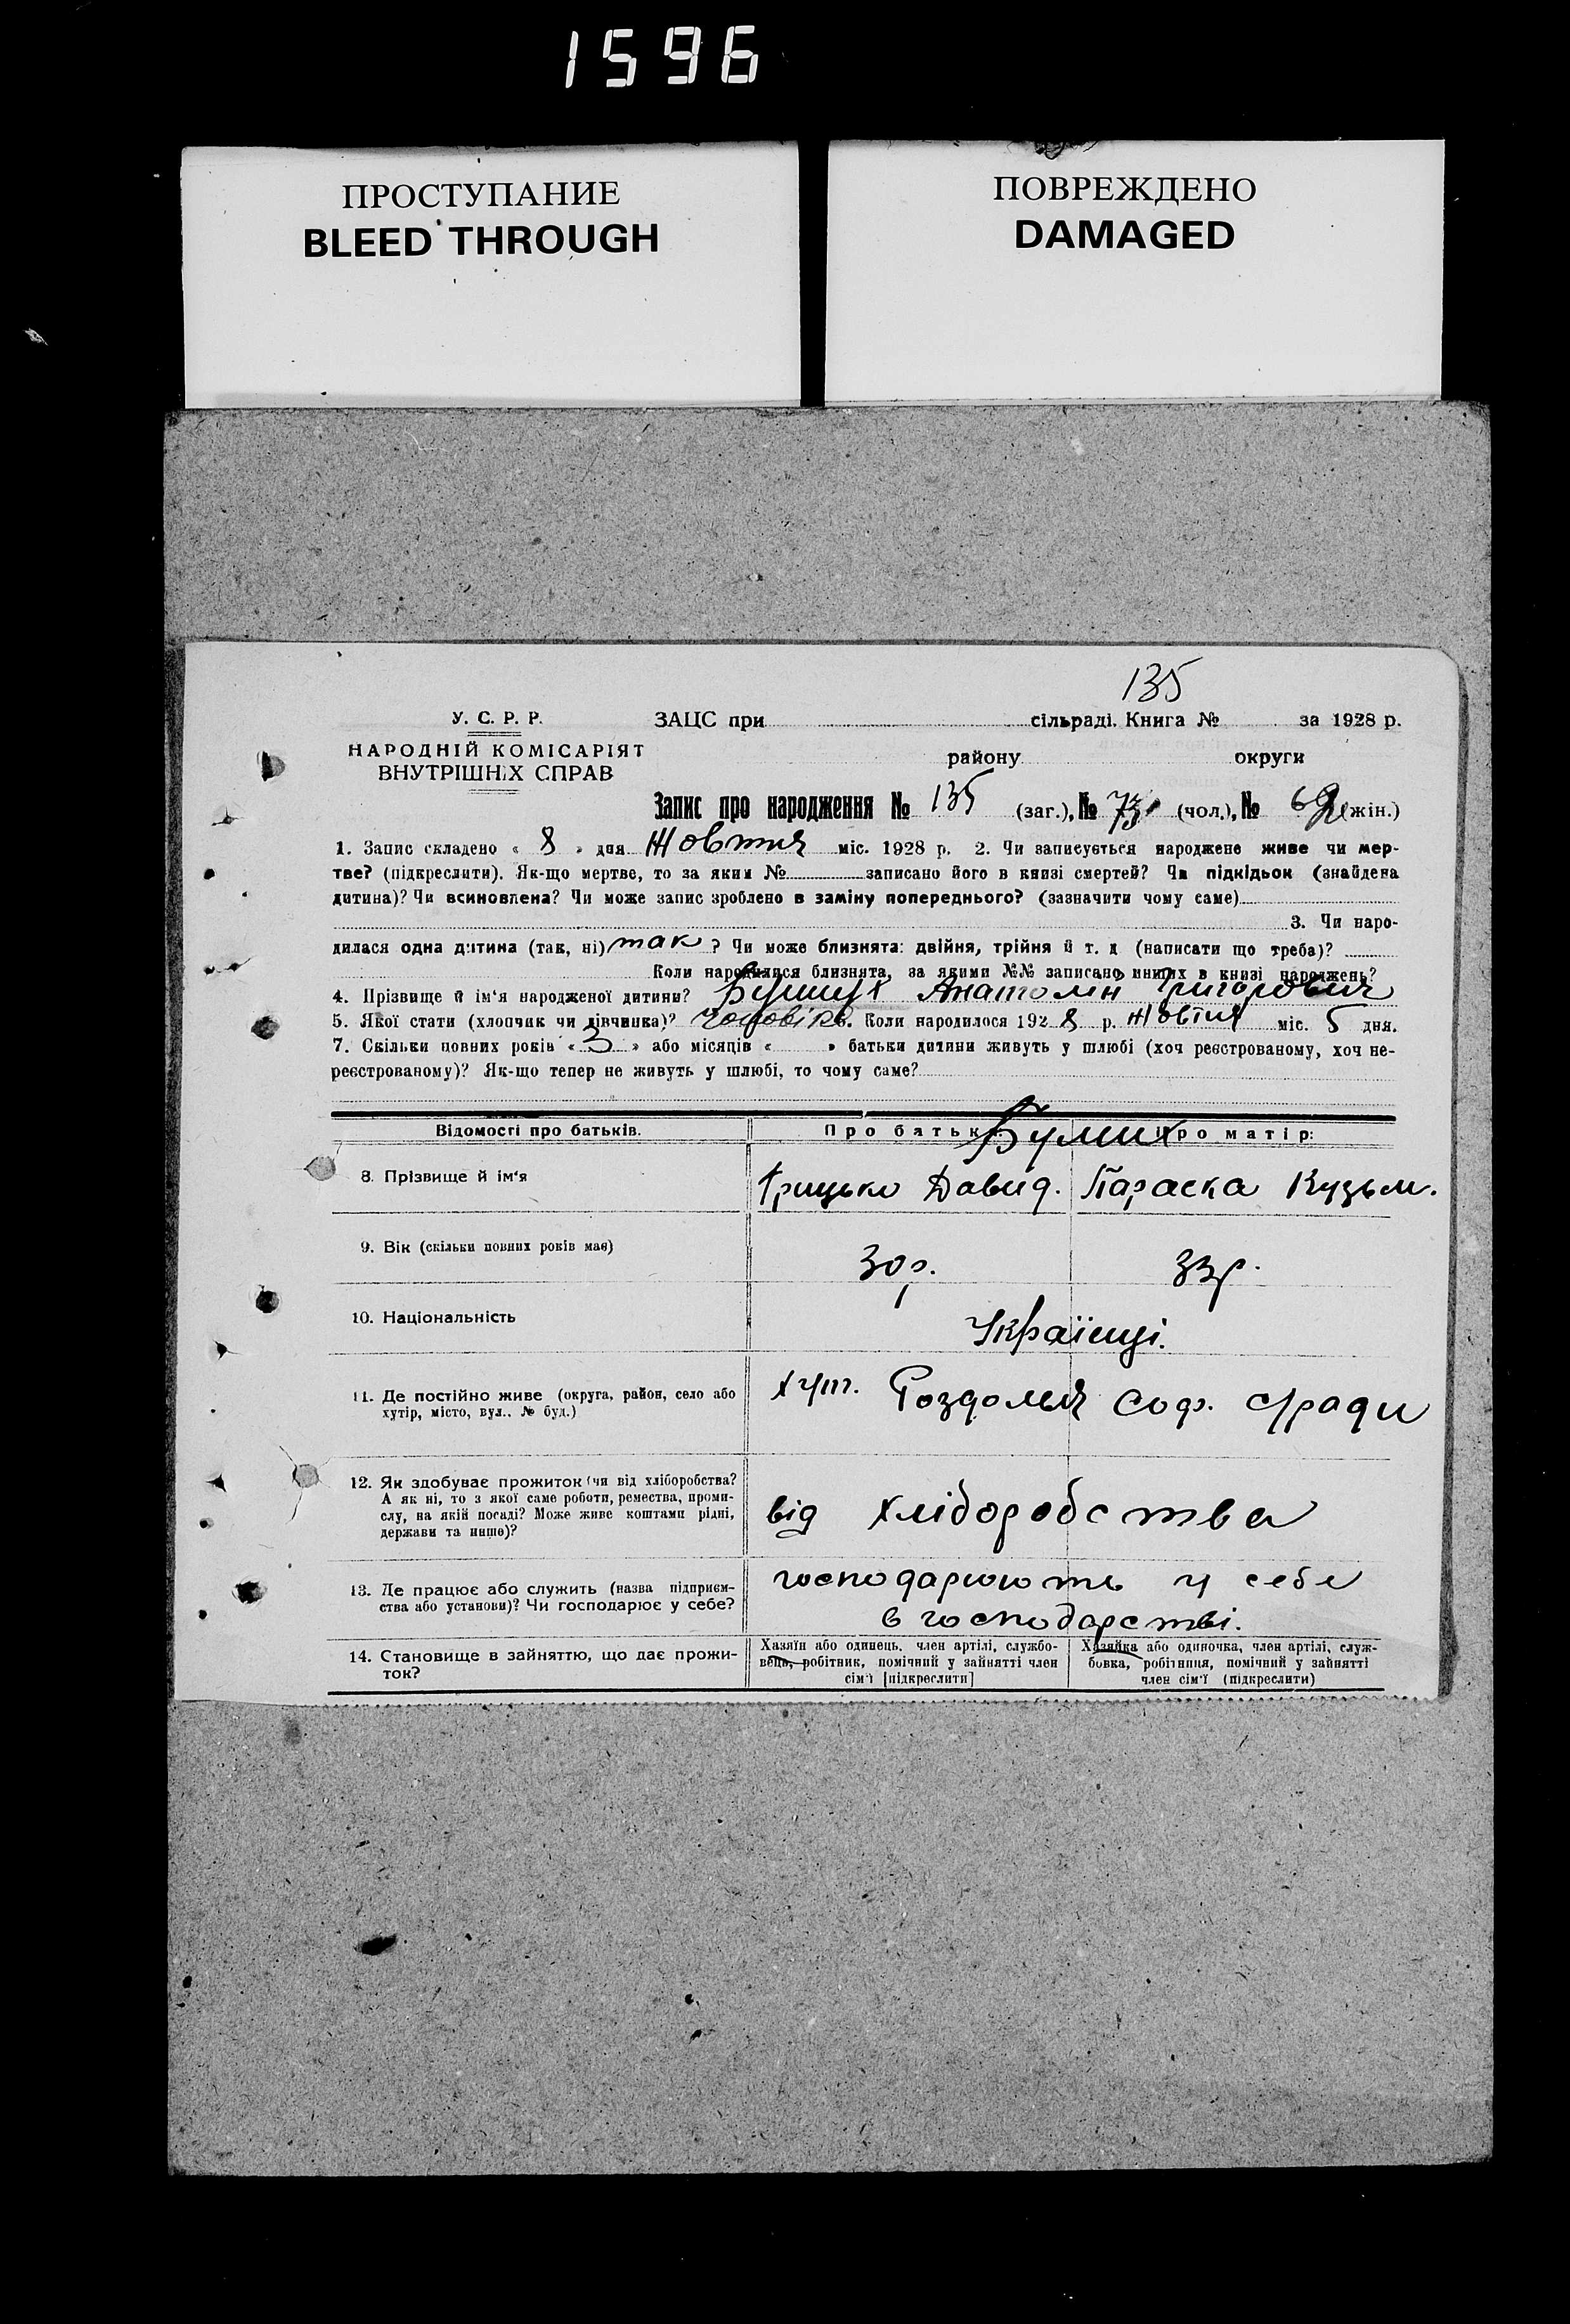 1596
ПРОСТУПАНИЕ
BLEED THROUGH
ПОВРЕЖДЕНО
DAMAGED
135
У. С. Р. Р.
НАРОДНІЙ КОМІСАРІЯТ
ВНУТРІШНІХ СПРАВ
ЗАЦС при сільраді. Книга № за 1928 р.
району округи
Запис про народження № 135 (заг.), № 73 (чол.), № 62 (жін.)
1. Запис складено « 8 » дня Жовтня міс. 1928 р. 2. Чи записується народжене живе чи мер-
тве? (підкреслити). Як-що мертве, то за яким № записано його в книзі смертей? Чи підкідьок (знайдена
дитина)? Чи всиновлена? Чи може запис зроблено в заміну попереднього? (зазначити чому саме)
3. Чи наро-
дилася одна дитина (так, ні) так ? Чи може близнята: двійня, трійня й т. д (написати що треба)?
Коли народилися близнята, за якими №№ записано инших в книзі народжень?
4. Прізвище й ім'я народженої дитини? Анатолій Григорович
5. Якої стати (хлопчик чи дівчинка)? Коли народилося 1928 р. Жовтня міс. 5 дня.
7. Скільки повних років « 3 » або місяців « » батьки дитини живуть у шлюбі (хоч реєстрованому, хоч не-
реєстрованому)? Як-що тепер не живуть у шлюбі, то чому саме?
Відомості про батьків. Про батька Про матір:
8. Прізвище й ім'я
Грицько Давид. Параска Кузьм.
9. Вік (скільки повних років має)
30 р. 33 р.
10. Національність
Українці.
11. Де постійно живе (округа, район, село або
хутір, місто, вул.. № буд.)
хут. Роздолля Соф. с/ради
12. Як здобуває прожиток (чи від хліборобства?
А як ні, то з якої саме роботи, ремества, проми-
слу, на якій посаді? Може живе коштами рідні,
держави та инше)?
від хліборобства
13. Де працює або служить (назва підприєм-
ства або установи)? Чи господарює у себе?
господарюють у себе
в господарстві.
14. Становище в зайняттю, що дає прожи-
ток?
Хазяїн або одинець, член артілі, службо-
вець, робітник, помічний у зайнятті член
сім'ї [підкреслити]
Хазяйка або одиночка, член артілі, служ-
бовка, робітниця, помічний у зайнятті
член сім'ї (підкреслити)